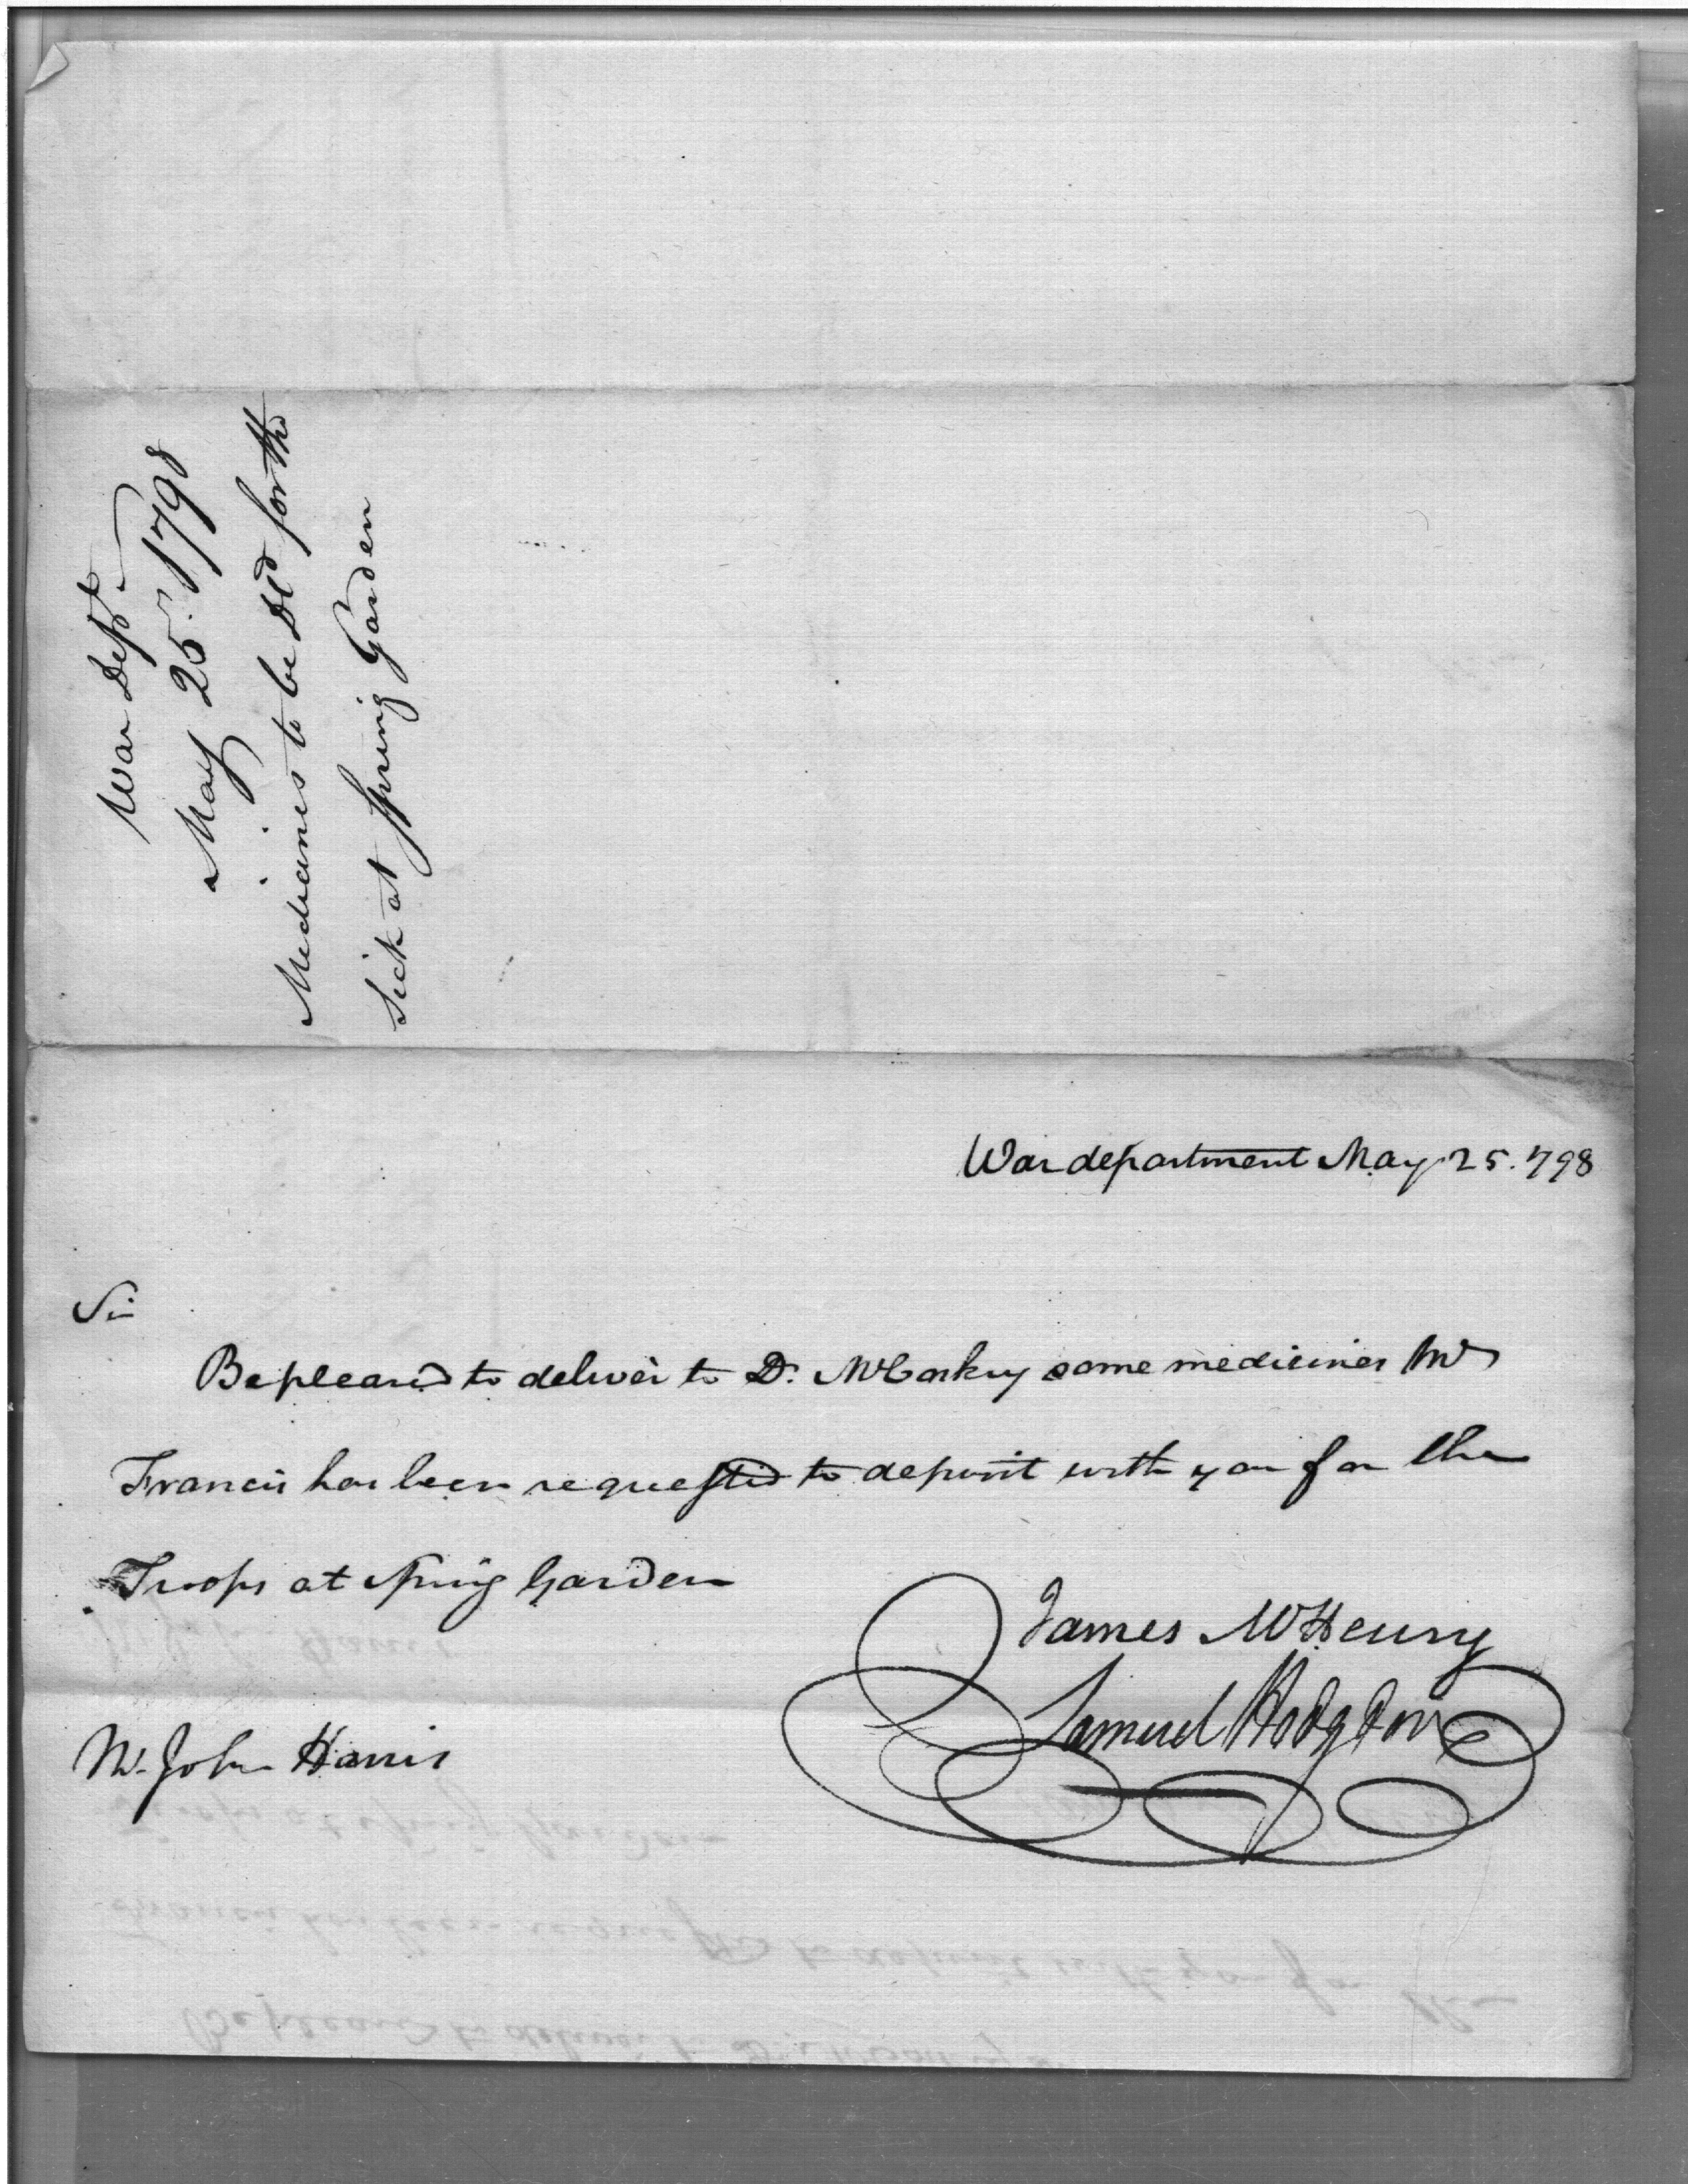 War Dept.
May 25. 1798
Medicines to be DD for the
Sick at Spring Garden
War department May 25. 798
Sir
Be pleased to deliver to Dr. McCoskry some medicines Mr
Francis has been requested to deposit with you for the
Troops at Spring Garden
James McHenry
Samuel Hodgdon
Mr. John Harris